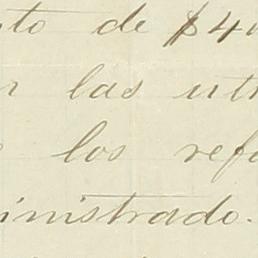 to de $40
las uti
los ref
inistrado.